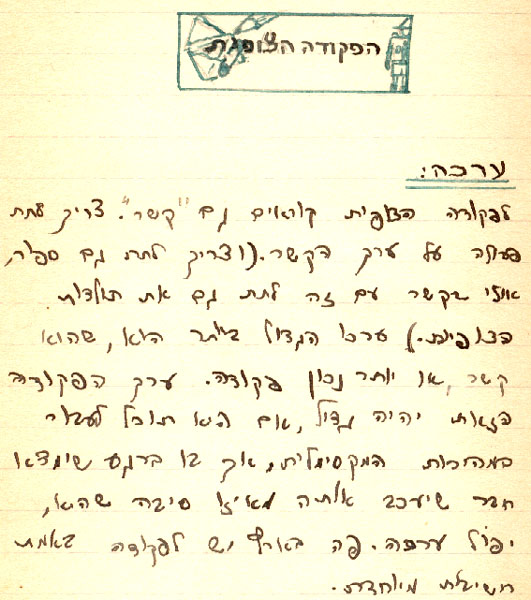 הפקודה הצופית
ערכה:
לפקודה הצופית קוראים גם "קשר". צריך לתת
פעולה על ערך הקשר. (וצריך לתת גם ספור,
אולי בקשר עם זה לתת גם את תולדות
הצופיות.) ערכו הגדול ביותר הוא, שהוא
קשר, או יותר נכון פקודה. ערך הפקודה
הזאת יהיה גדול, אם היא תוכל לעבור
במהירות המקסימלית, אך בו ברגע שימצאו
חבר שיעכב אותה מאיזו סיבה שהיא,
יפול ערכה. פה בארץ יש לפקודה באמת
חשיבות מיוחדת.